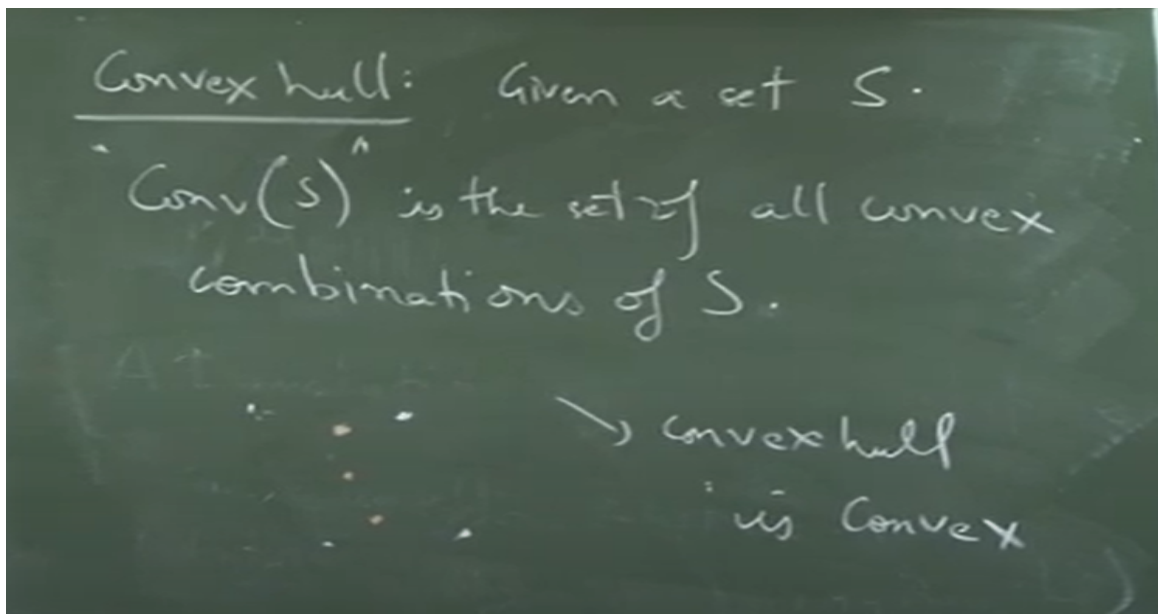 Convex hull: Given a set S.
Conv(S) is the set of all convex
combinations of S.
→ convex hull
is convex